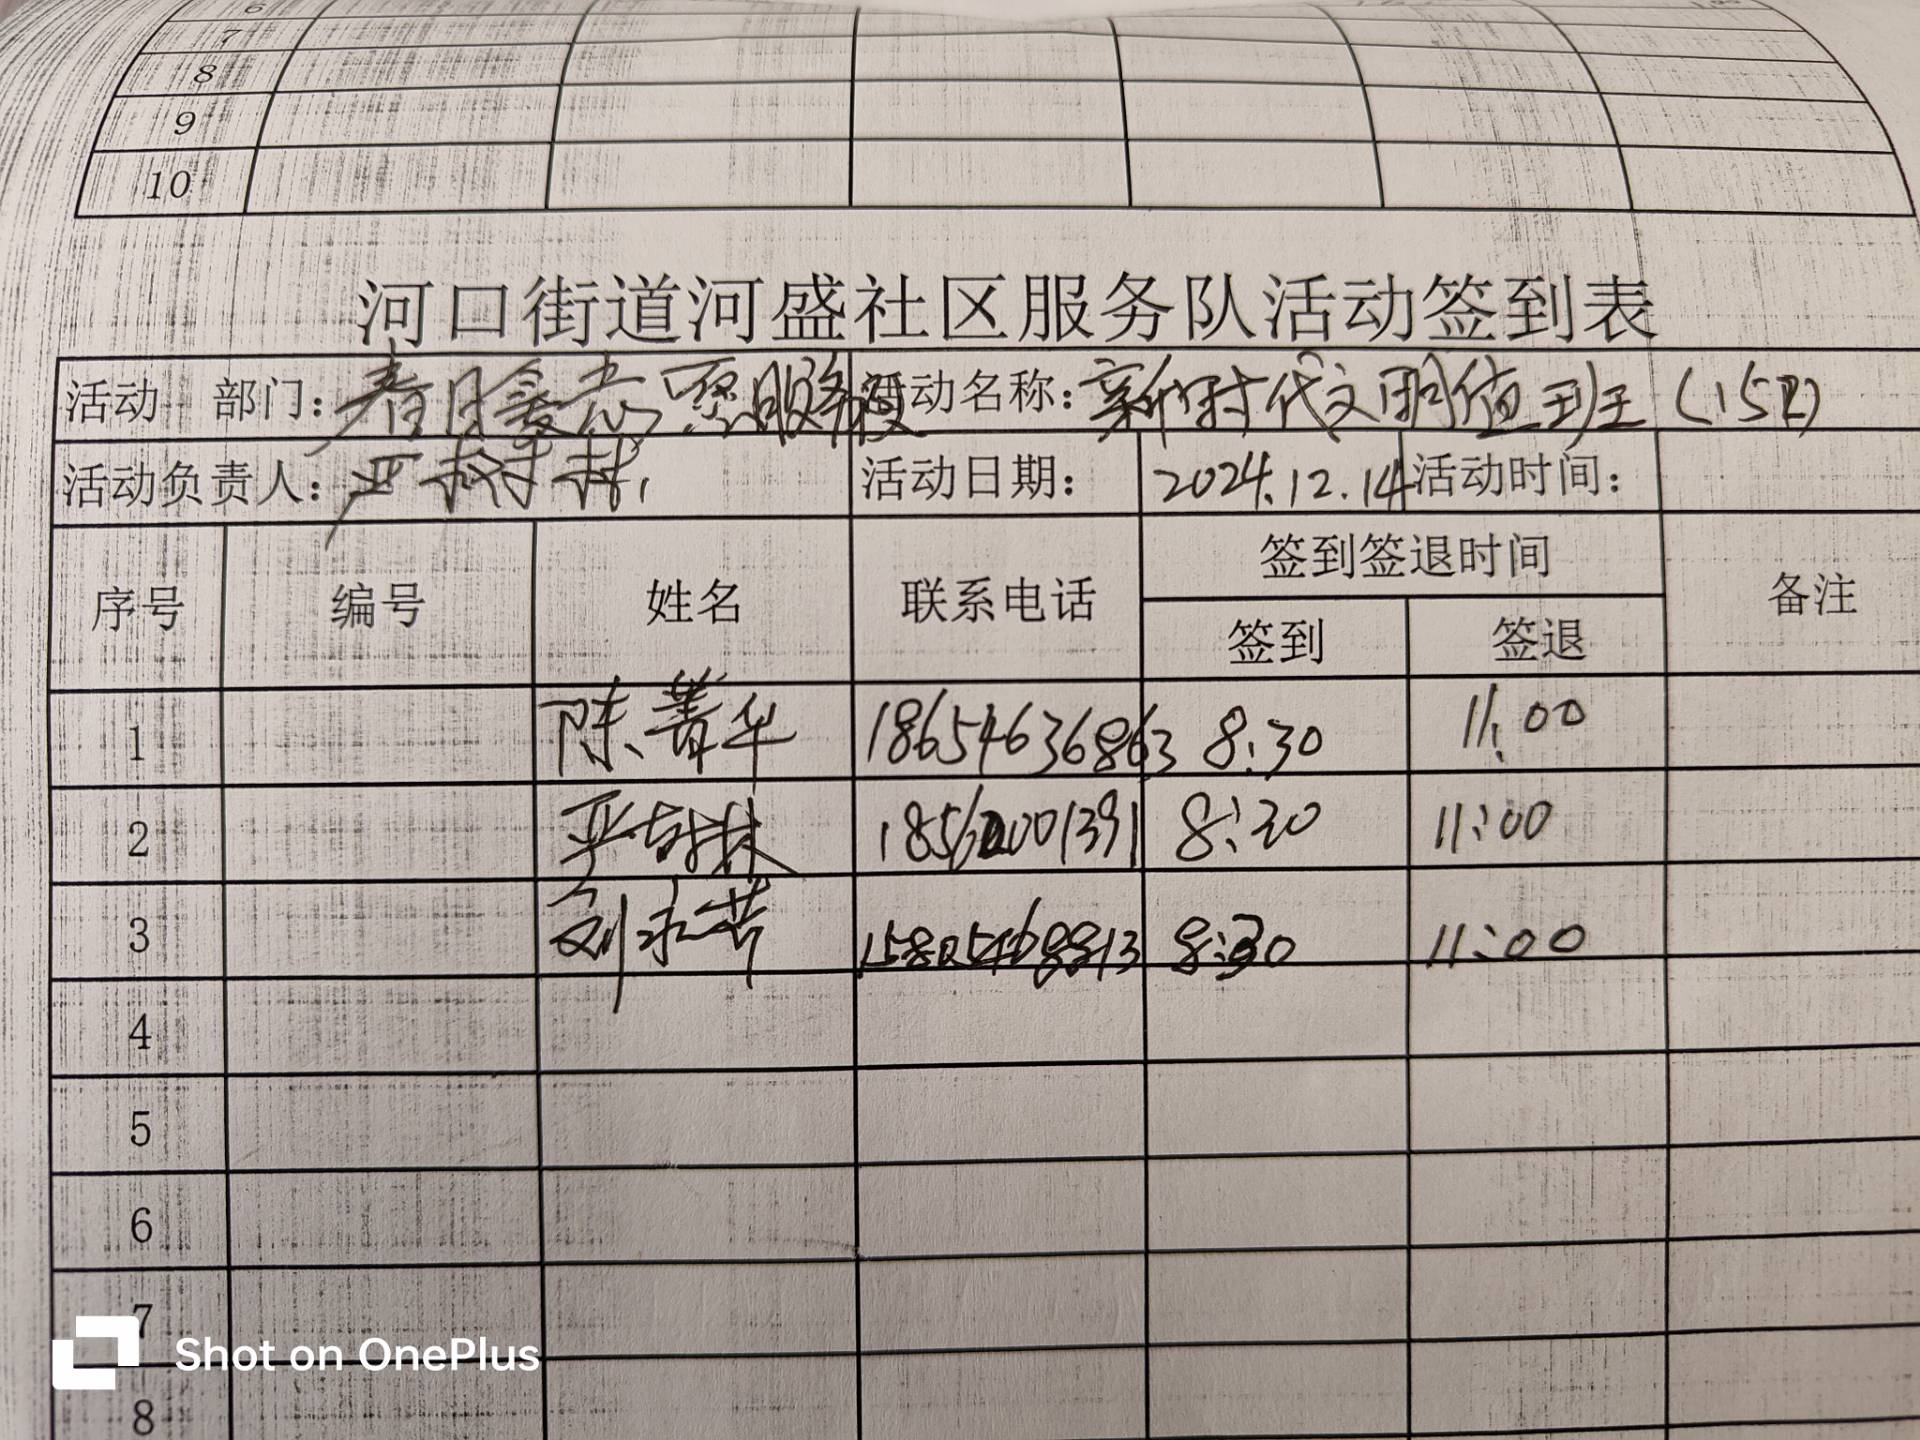 6
7
8
9
10
河口街道河盛社区服务队活动签到表
活动 部门：春日暖志愿服务 活动名称：新时代文明值班（15区）
活动负责人：严树林 活动日期： 2024.12.14 活动时间：
序号 编号 姓名 联系电话 签到签退时间 备注
签到 签退
1 陈菁华 18654636863 8:30 11:00
2 严树林 18562001391 8:30 11:00
3 刘永芳 15805468813 8:30 11:00
4
5
6
7
Shot on OnePlus
8